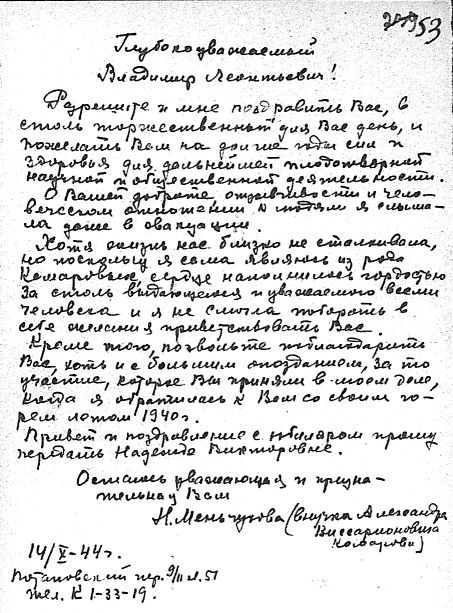 53
Глубокоуважаемый
Владимир Леонтьевич!
Разрешите и мне поздравить Вас, в
столь торжественный для Вас день, и
пожелать Вам на долгие годы сил и
здоровья для дальнейшей плодотворной
научной и общественной деятельности.
О Вашей доброте, отзывчивости и чело-
вечском отношении к людям я слыша-
ла даже в эвакуации.
Хотя жизнь нас близко не сталкивала,
но поскольку я сама являюсь из рода
Комаровых сердце наполнилось гордостью
за столь выдающегося и уважаемого всеми
человека и я не смогла побороть в
себе желания приветствовать Вас.
Кроме того, позвольте поблагодарить
Вас, хоть и с большим опозданием, за то
участие, которое Вы приняли в моем деле,
когда я обратилась к Вам со своим го-
рем летом 1940г.
Привет и поздравление с юбиляром прошу
передать Надежде Викторовне.
Остаюсь уважающая и призна-
тельная Вам
Н. Меньшова (внучка Александра
Виссарионовича
Комарова)
14/X-44г.
Потаповский пер. 9/11 кв. 51
тел. К 1-33-19.